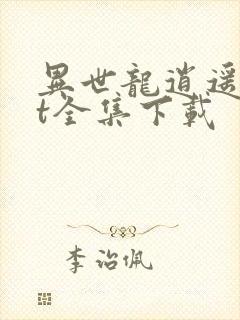 異世龍逍遥
t全集下載
李治佩